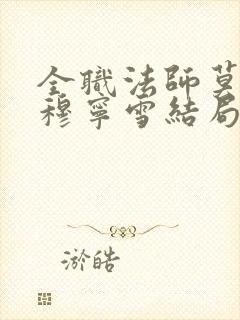 全職法師莫
穆寧雪結局
淤皓